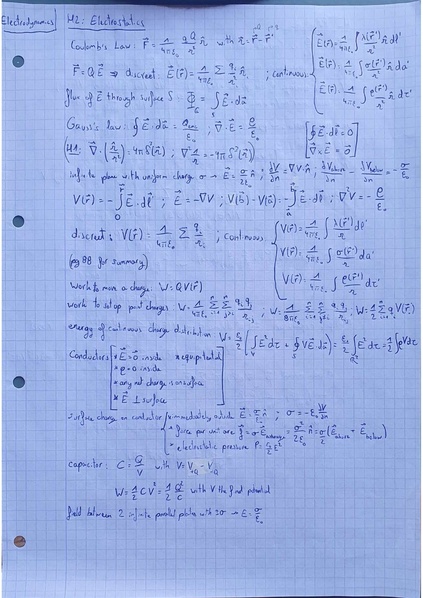 Electrodynamics
H2: Electrostatics
Coulomb's Law: F⃗ = 1/4πε₀ qQ/r² r̂ with r⃗ = r⃗ - r⃗'
F⃗ = Q E⃗ ⇒ discreet: E⃗(r⃗) = 1/4πε₀ Σ qᵢ/rᵢ² r̂ᵢ ; continuous { E⃗(r⃗) = 1/4πε₀ ∫ λ(r⃗')/r² r̂ dl'
E⃗(r⃗) = 1/4πε₀ ∫ σ(r⃗')/r² r̂ da'
E⃗(r⃗) = 1/4πε₀ ∫ ρ(r⃗')/r² r̂ dτ'
flux of E⃗ through surface S: Φ_E = ∫_S E⃗·da⃗
Gauss's law: ∮ E⃗·da⃗ = Q_enc/ε₀ ; ∇⃗·E⃗ = ρ/ε₀
[ ∮ E⃗·dl⃗ = 0
∇⃗×E⃗ = 0⃗ ]
(H1: ∇⃗·(r̂/r²) = 4πδ³(r⃗) ; ∇² 1/r = -4πδ³(r⃗))
infinite plane with uniform charge σ → E⃗ = σ/2ε₀ n̂ ; ∂V/∂n = ∇⃗V·n̂ ; ∂V_above/∂n - ∂V_below/∂n = -σ/ε₀
V(r⃗) = -∫₀^r⃗ E⃗·dl⃗ ; E⃗ = -∇V ; V(b⃗) - V(a⃗) = -∫_a⃗^b⃗ E⃗·dl⃗ ; ∇²V = -ρ/ε₀
discreet: V(r⃗) = 1/4πε₀ Σ qᵢ/rᵢ ; continuous { V(r⃗) = 1/4πε₀ ∫ λ(r⃗')/r dl'
V(r⃗) = 1/4πε₀ ∫ σ(r⃗')/r da'
V(r⃗) = 1/4πε₀ ∫ ρ(r⃗')/r dτ'
(pg 88 for summary)
Work to move a charge: W = QV(r⃗)
work to set up point charges: W = 1/4πε₀ Σ Σ qᵢqⱼ/rᵢⱼ ; W = 1/8πε₀ Σ Σ qᵢqⱼ/rᵢⱼ ; W = 1/2 Σ qᵢ V(r⃗ᵢ)
energy of continuous charge distribution: W = ε₀/2 (∫ E² dτ + ∮ V E⃗·da⃗) = ε₀/2 ∫ E² dτ = 1/2 ∫ ρV dτ
Conductors [ * E⃗ = 0 inside * equipotential
* ρ = 0 inside
* any net charge is on surface
* E⃗ ⊥ surface ]
surface charge on conductor { * immediately outside E⃗ = σ/ε₀ n̂ ; σ = -ε₀ ∂V/∂n
* force per unit area f⃗ = σE⃗_average = σ²/2ε₀ n̂ = σ/2 (E⃗_above + E⃗_below)
* electrostatic pressure P = ε₀/2 E²
capacitor: C = Q/V with V = V₊Q - V₋Q
W = 1/2 CV² = 1/2 Q²/C with V the final potential
field between 2 infinite parallel plates with ±σ → E = σ/ε₀